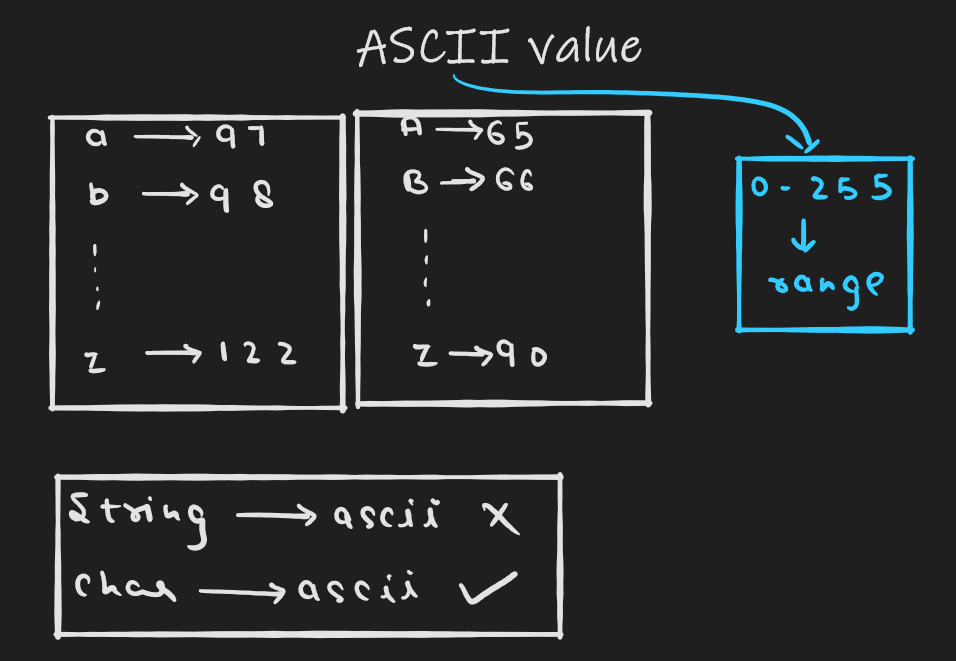 ASCII value
a → 97
b → 98
z → 122
A → 65
B → 66
Z → 90
0 - 255
↓
range
String → ascii X
char → ascii ✓